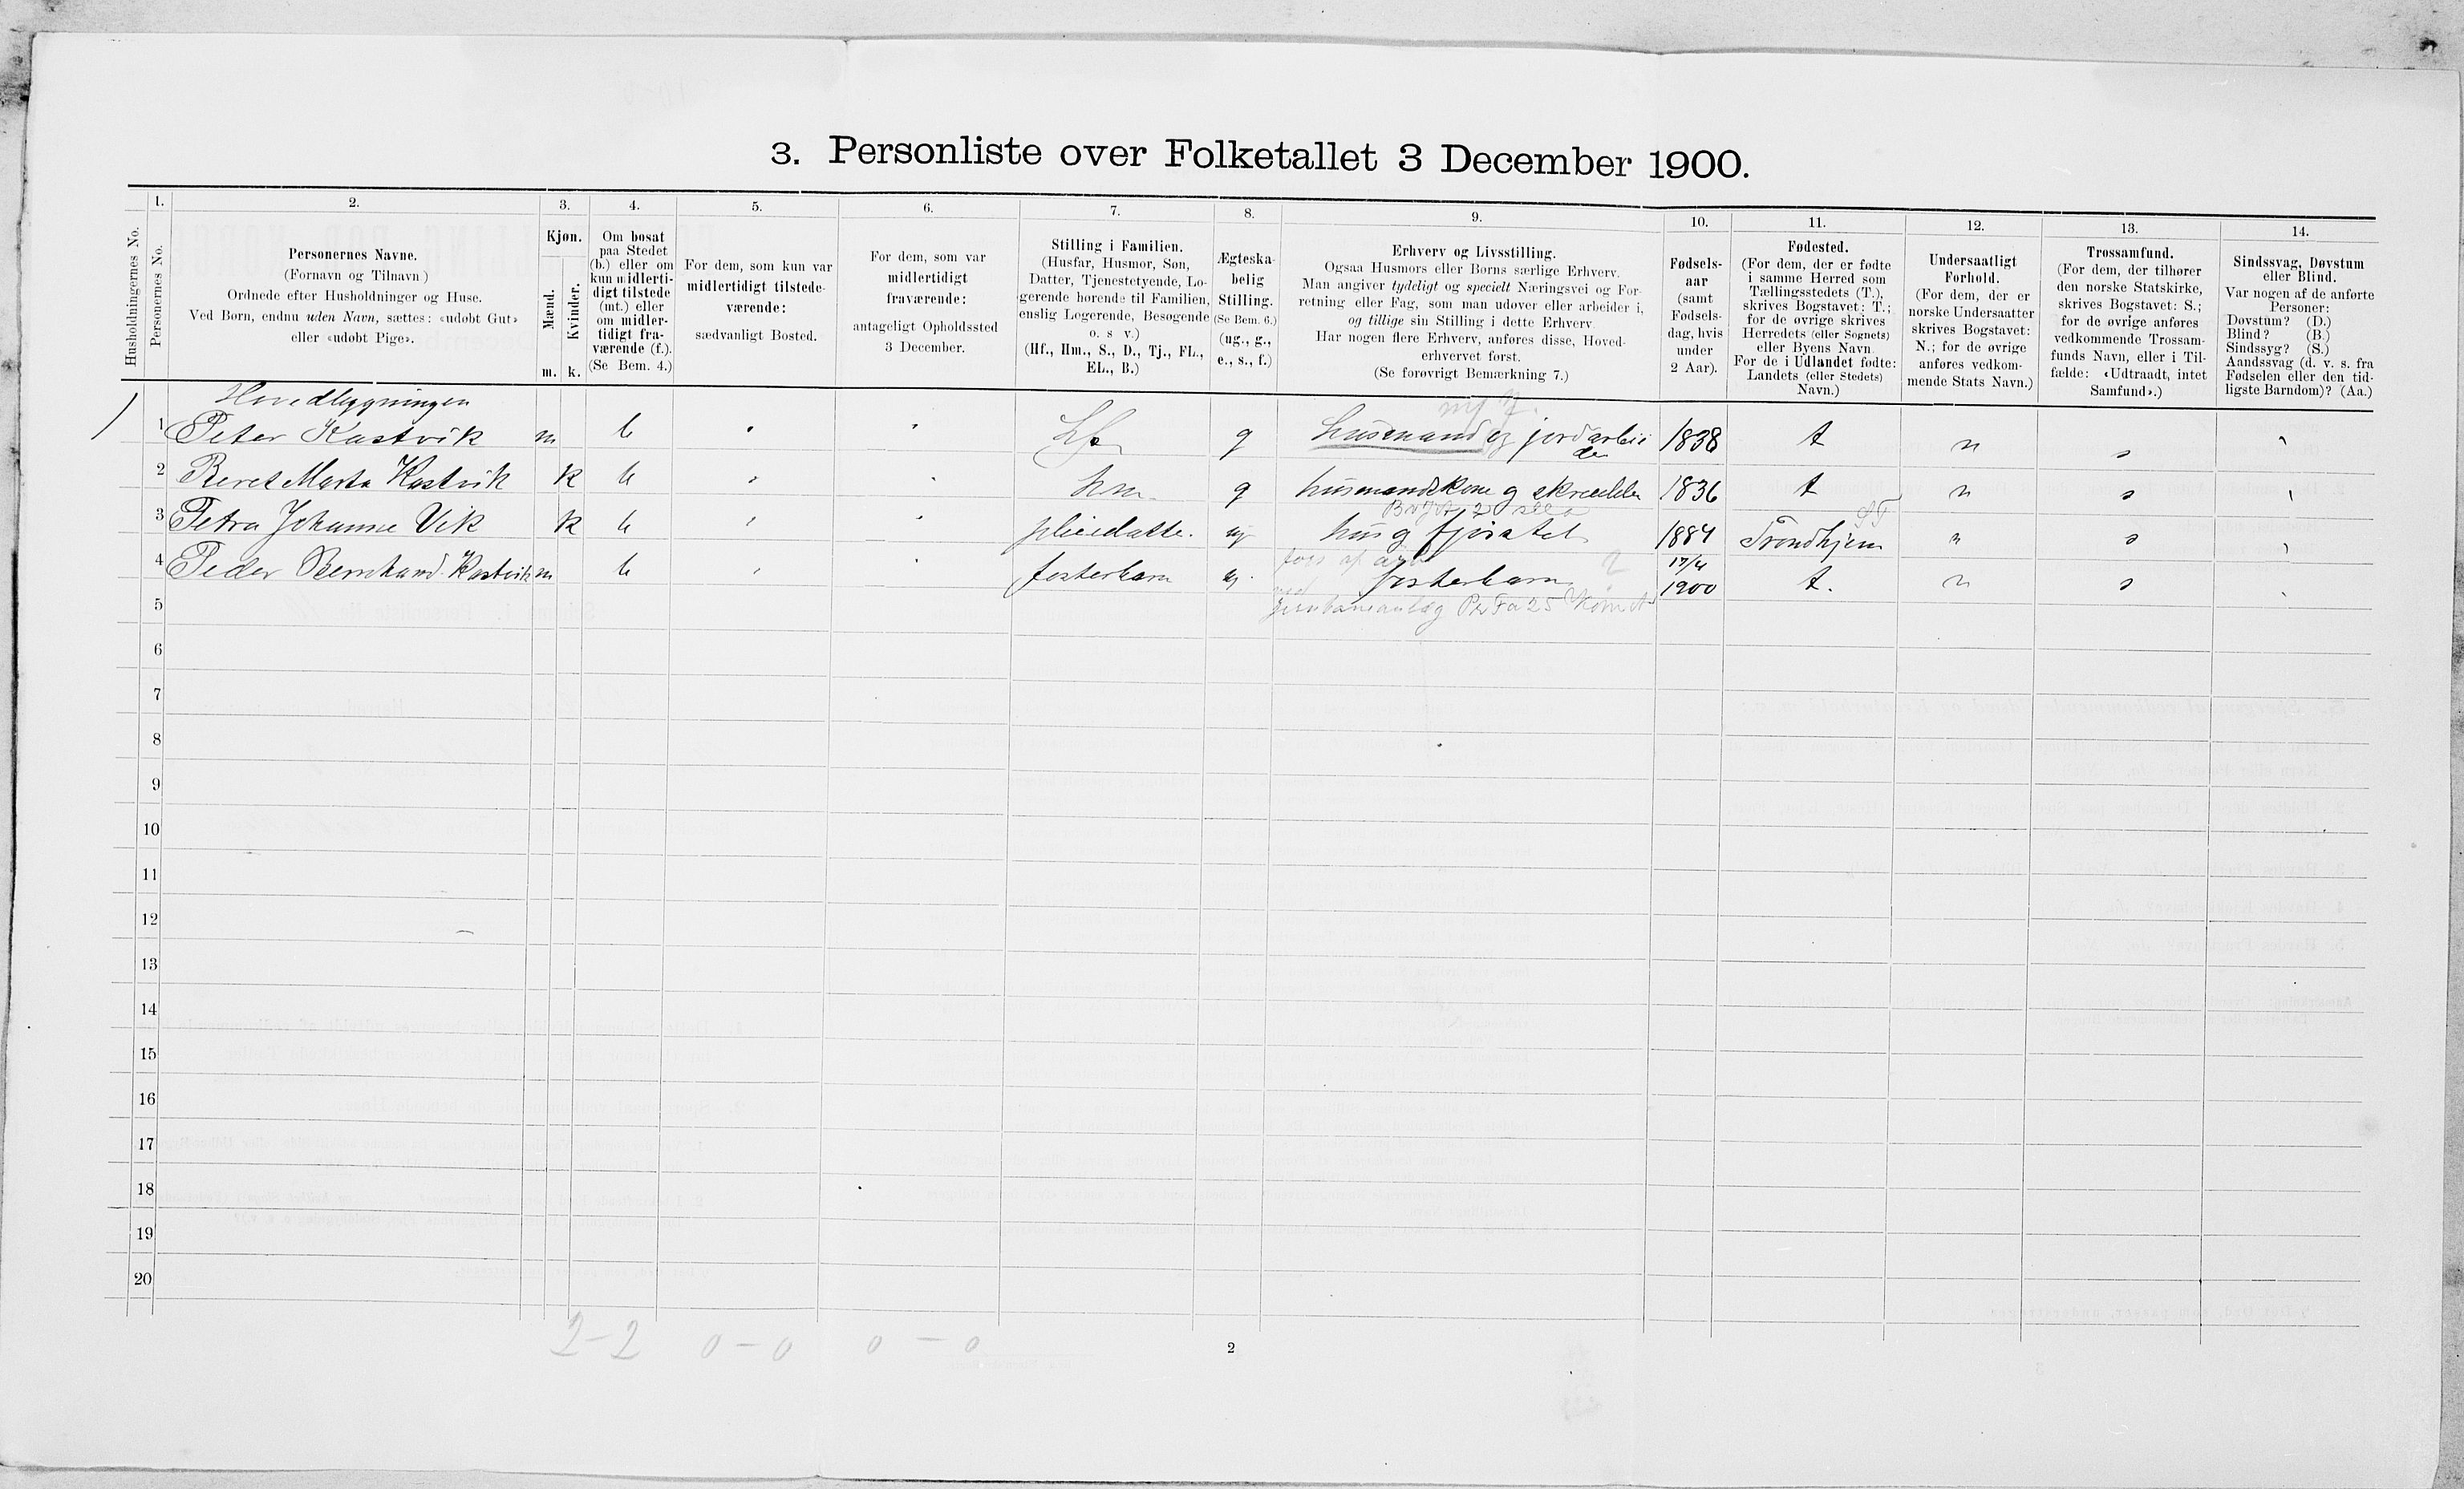 3. Personliste over Folketallet 3 December 1900.
1. 2. 3. 4. 5. 6. 7. 8. 9. 10. 11. 12. 13. 14.
Husholdningernes No.
Personernes No.
Personernes Navne.
(Fornavn og Tilnavn)
Ordnede efter Husholdninger og Huse.
Ved Børn, endnu uden Navn, sættes: «udøbt Gut»
eller «udøbt Pige».
Kjøn.
Mænd.
Kvinder.
m. k.
Om bosat
paa Stedet
(b.) eller om
kun midlerti-
digt tilstede
(mt.) eller
om midler-
tidigt fra-
værende (f.).
(Se Bem. 4.)
For dem, som kun var
midlertidigt tilstede-
værende:
sædvanligt Bosted.
For dem, som var
midlertidigt
fraværende:
antageligt Opholdssted
3 December.
Stilling i Familien.
(Husfar, Husmor, Søn,
Datter, Tjenestetyende, Lo-
gerende hørende til Familien,
enslig Logerende, Besøgende
o. s v.)
(Hf., Hm., S., D., Tj., FL.,
EL., B.)
Ægteska-
belig
Stilling.
(Se Bem. 6.)
(ug., g.,
e., s., f.)
Erhverv og Livsstilling.
Ogsaa Husmors eller Børns særlige Erhverv.
Man angiver tydeligt og specielt Næringsvei og For-
retning eller Fag, som man udøver eller arbeider i,
og tillige sin Stilling i dette Erhverv.
Har nogen flere Erhverv, anføres disse, Hoved-
erhvervet først.
(Se forøvrigt Bemærkning 7.)
Fødsels-
aar
(samt
Fødsels-
dag, hvis
under
2 Aar).
Fødested.
(For dem, der er fødte
i samme Herred som
Tællingsstedets (T.),
skrives Bogstavet: T.;
for de øvrige skrives
Herredets (eller Sognets)
eller Byens Navn.
For de i Udlandet fødte:
Landets (eller Stedets)
Navn.)
Undersaatligt
Forhold.
(For dem, der er
norske Undersaatter
skrives Bogstavet:
N.; for de øvrige
anføres vedkom-
mende Stats Navn.)
Trossamfund.
(For dem, der tilhører
den norske Statskirke,
skrives Bogstavet: S.;
for de øvrige anføres
vedkommende Trossam-
funds Navn, eller i Til-
fælde: «Udtraadt, intet
Samfund».)
Sindssvag, Døvstum
eller Blind.
Var nogen af de anførte
Personer:
Døvstum? (D.)
Blind? (B.)
Sindssyg? (S.)
Aandssvag (d. v. s. fra
Fødselen eller den tid-
ligste Barndom)? (Aa.)
Hovedbygningen
1 Peter Kastvik m b hf g husmand og jordarbei
der 1838 t n s
2 Beret Marta Kastvik k b hm g husmandskone g skrædder 1836 t n s
3 Petra Johanne Vik k b pleiedatter ug hus g fjøsstel 1884 Trondhjem n s
4 Peder Bernhard Kastvik m b fosterbarn ug fosterbarn 17/4
1900 t. n s
5
6
7
8
9
10
11
12
13
14
15
16
17
18
19
20
2-2 0-0 0-0
2